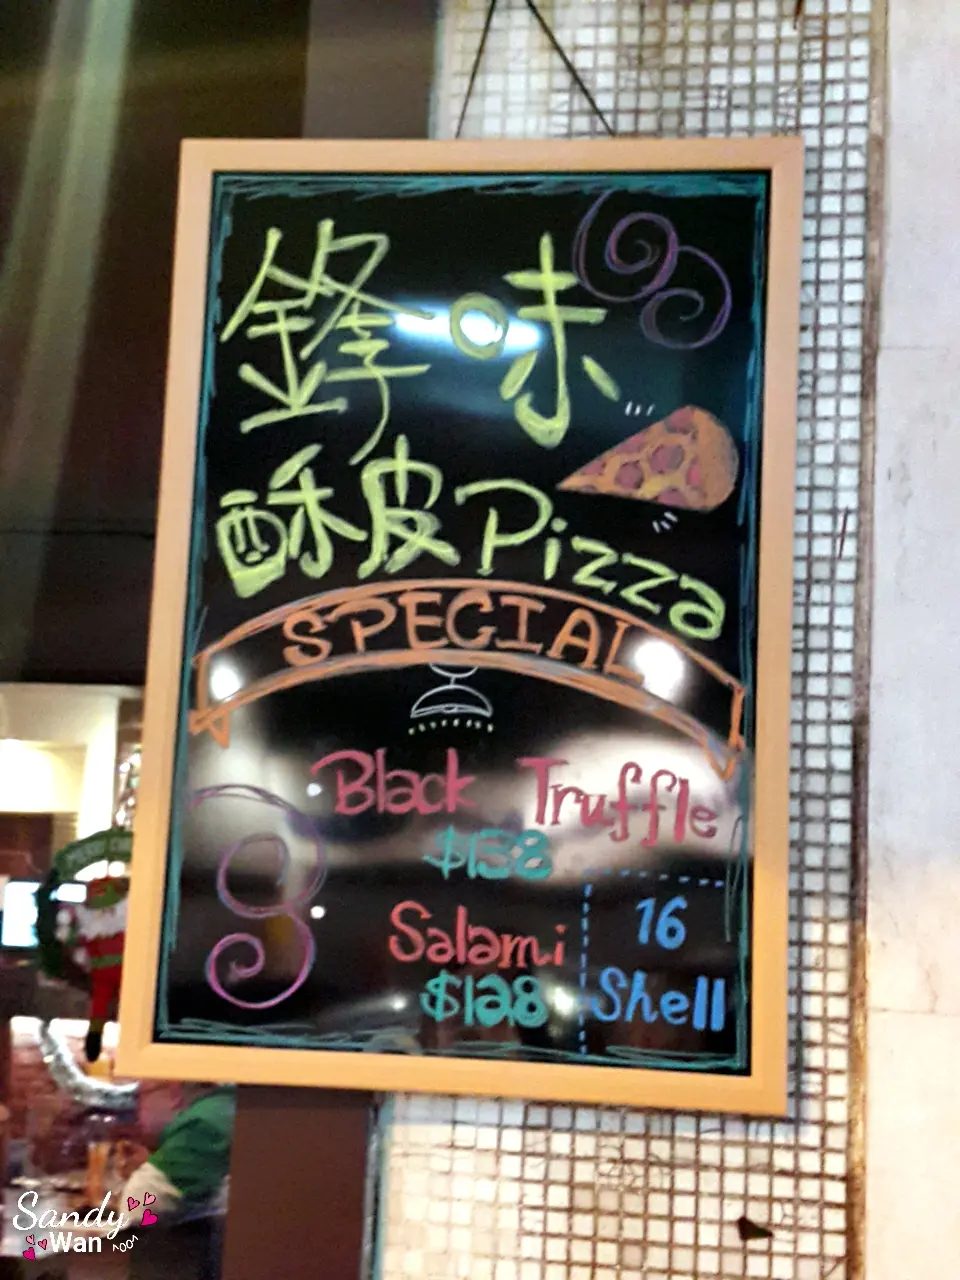 鋒味
酥皮Pizza
SPECIAL
Black Truffle
$138
Salami
$128
16
Shell
Sandy
Wan ^oo^